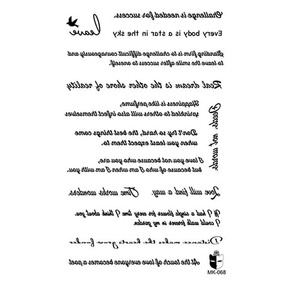 Challenge is needed for success.
leave
Every body is a star in the sky
Standing firm is to challenge difficult courageously and
to leave the smile after success to oneself.
Real dream is the other shore of reality
Happiness is like perfume,
sprinkled to others will also infect themselves
Deeds, not words
Don't try so hard, the best things come
when you least expect them to.
I love you not because who you are, but
because of who I am when I am with you.
Love will find a way. Time wonders.
If I had a single flower for every time I think about you,
I could forever walk in my garden.
Distance makes the hearts grow fonder
At the touch of love everyone becomes a poet
MK-068